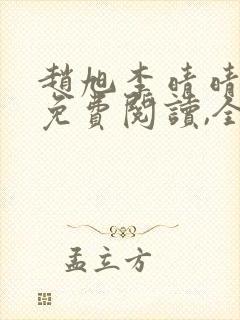 趙旭李晴晴
免費閱讀,全
孟立方